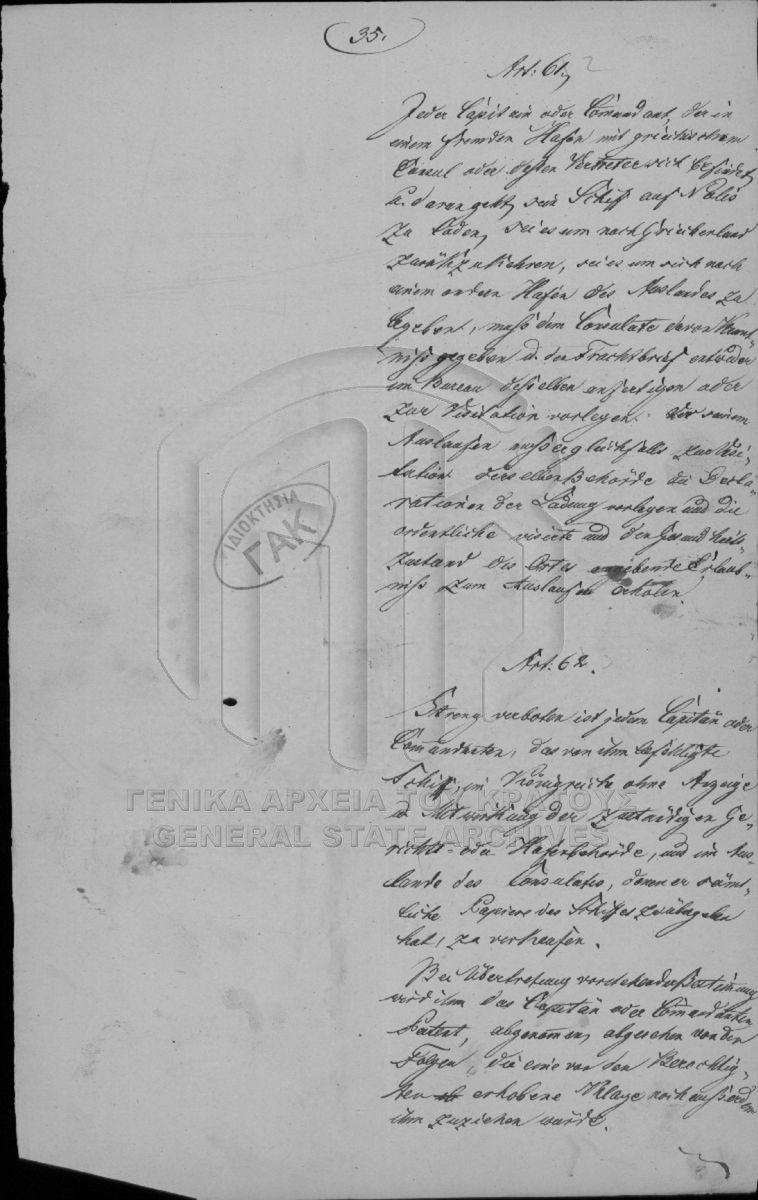 35.
Art: 61.
Jeder Capitain oder Commandant, der in
einem fremden Hafen mit griechischem
Consul oder dessen Vertreter sich befindet,
u. daran geht, sein Schiff auf Nolis
zu laden, sei es um nach Griechenland
zurückzukehren, sei es um sich nach
einem andern Hafen des Auslandes zu
begeben, muß dem Consulate davon Kennt-
niß gegeben u. den Frachtbrief entweder
im Bureau desselben anfertigen oder
zur Visitation vorlegen. Vor seinem
Auslaufen muß er gleichfalls zur Visi-
tation derselben Behörde die Decla-
rationen der Ladung vorlegen und die
ordentliche visirte und den Gesundheits-
zustand des Ortes angebende Erlaub-
niß zum Auslaufen erholen.
Art: 62.
Streng verboten ist jedem Capitän oder
Commandanten, das von ihm befehligte
Schiff, im Königreiche ohne Anzeige
u. Mitwirkung der zuständigen Ge-
richts- oder Hafenbehörde, und im Aus-
lande des Consulates, denen er sämt-
liche Papiere des Schiffes zu übergeben
hat, zu verkaufen.
Bei Übertretung vorstehender Bestimmung
wird ihm das Capitän oder Commandanten
Patent, abgenommen, abgesehen von den
Folgen, die eine von den Berechtig-
ten erhobene Klage noch außerdem
ihm zuziehen würde.
ΙΔΙΟΚΤΗΣΙΑ
ΓΑΚ
ΓΕΝΙΚΑ ΑΡΧΕΙΑ ΤΟΥ ΚΡΑΤΟΥΣ
GENERAL STATE ARCHIVES